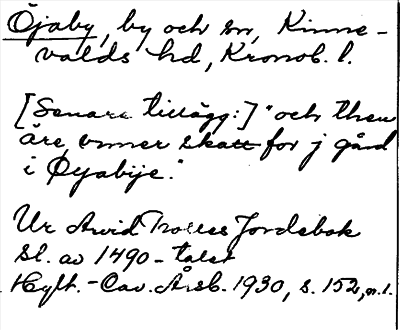 Öjaby, by och sn, Kinne-
valds hd, Kronob. l.
[Senare tillägg:] "och then
äre vnner skatt for j gård
i Øyabije."
Ur Arvid Trolles Jordebok
sl. av 1490-talet
Hylt.-Cav. Årsb. 1930, s. 152, n. 1.